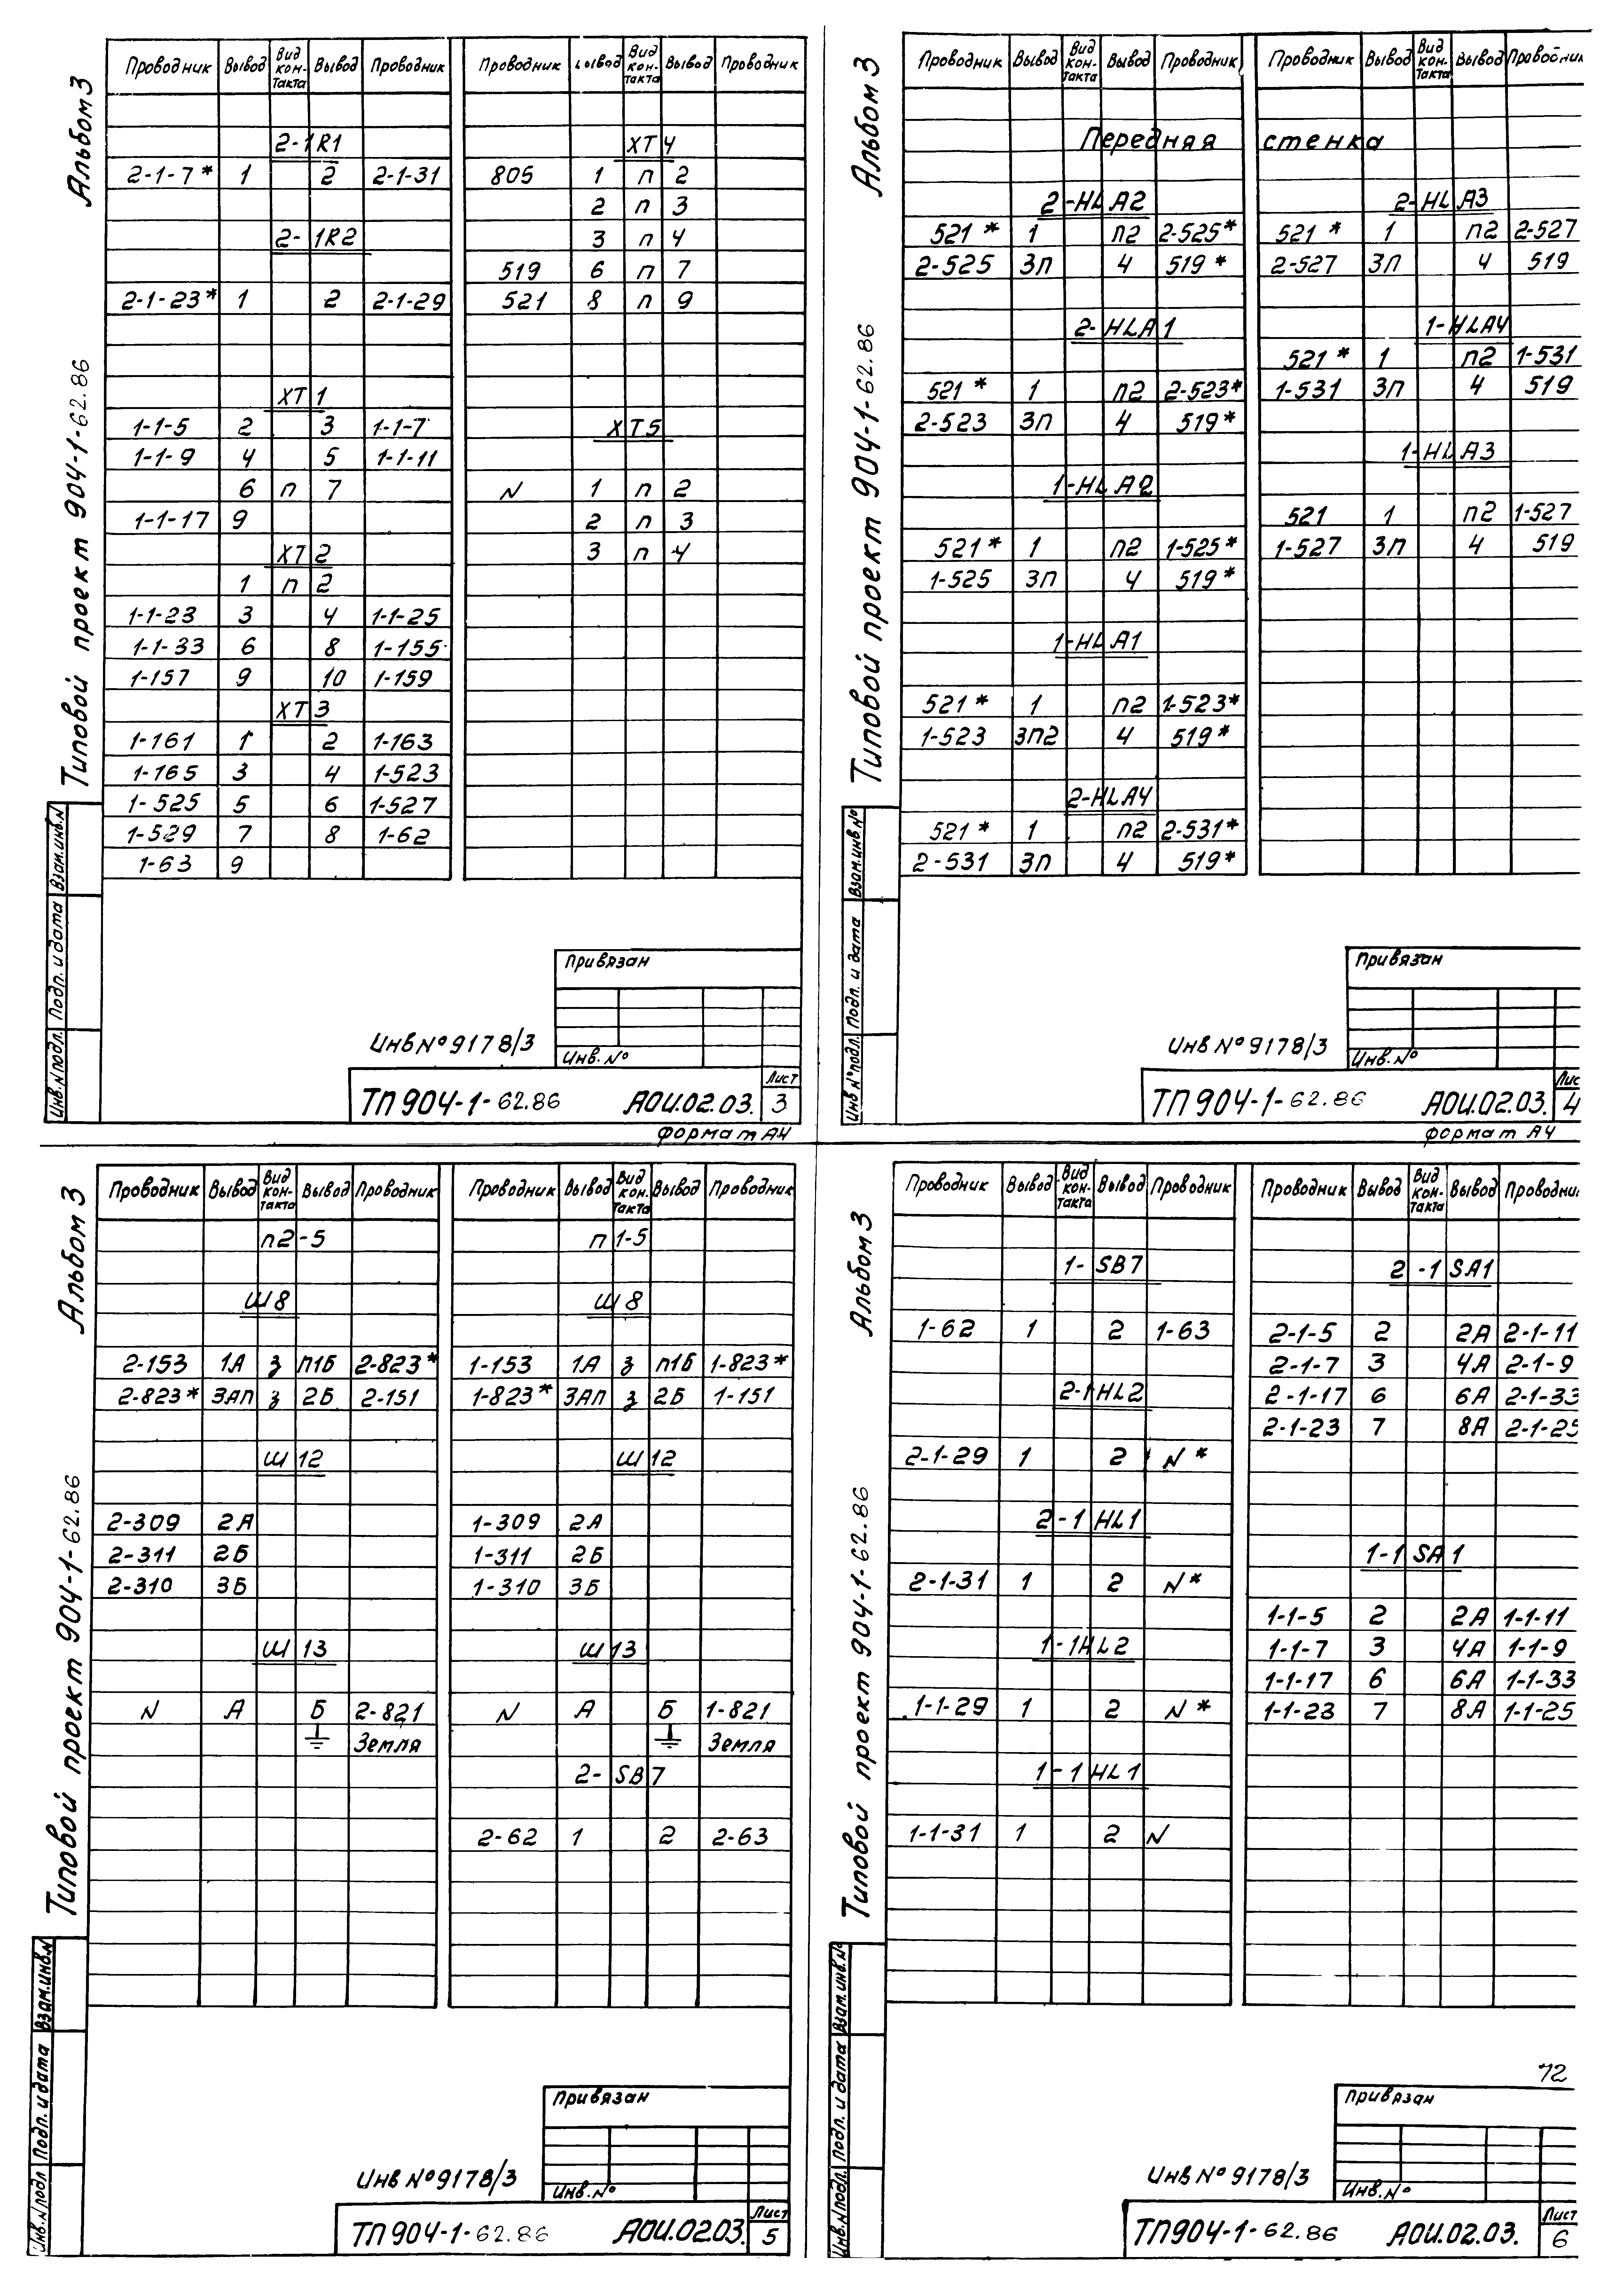 Альбом 3
Типовой проект 904-1-62.86
Проводник Вывод Вид кон-такта Вывод Проводник
2-1R1
2-1-7* 1 2 2-1-31
2-1R2
2-1-23* 1 2 2-1-29
ХТ1
1-1-5 2 3 1-1-7
1-1-9 4 5 1-1-11
6 п 7
1-1-17 9
ХТ2
1 п 2
1-1-23 3 4 1-1-25
1-1-33 6 8 1-155
1-157 9 10 1-159
ХТ3
1-161 1 2 1-163
1-165 3 4 1-523
1-525 5 6 1-527
1-529 7 8 1-62
1-63 9
Проводник Вывод Вид кон-такта Вывод Проводник
ХТ4
805 1 п 2
2 п 3
3 п 4
519 6 п 7
521 8 п 9
ХТ5
N 1 п 2
2 п 3
3 п 4
Инв.N подл. Подп. и дата Взам.инв.N
Привязан
Инв.№
Инв №9178/3
ТП904-1-62.86 АОИ.02.03. Лист 3
формат А4
Альбом 3
Типовой проект 904-1-62.86
Проводник Вывод Вид кон-такта Вывод Проводник
Проводник Вывод Вид кон-такта Вывод Проводник
Передняя стенка
2-HLA2
521* 1 п2 2-525*
2-525 3п 4 519*
2-HLA1
521* 1 п2 2-523*
2-523 3п 4 519*
1-HLA2
521* 1 п2 1-525*
1-525 3п 4 519*
1-HLA1
521* 1 п2 1-523*
1-523 3п2 4 519*
2-HLA4
521* 1 п2 2-531*
2-531 3п 4 519*
2-HLA3
521* 1 п2 2-527
2-527 3п 4 519
1-HLA4
521* 1 п2 1-531
1-531 3п 4 519
1-HLA3
521 1 п2 1-527
1-527 3п 4 519
Инв №подл. Подп. и дата Взам.инв№
Привязан
Инв.№
Инв №9178/3
ТП904-1-62.86 АОИ.02.03. Лис 4
формат А4
Альбом 3
Типовой проект 904-1-62.86
Проводник Вывод Вид кон-такта Вывод Проводник
п2-5
Ш8
2-153 1А з п1Б 2-823*
2-823* 3Ап з 2Б 2-151
Ш12
2-309 2А
2-311 2Б
2-310 3Б
Ш13
N А Б 2-821
Земля
Проводник Вывод Вид кон-такта Вывод Проводник
п1-5
Ш8
1-153 1А з п1Б 1-823*
1-823* 3Ап з 2Б 1-151
Ш12
1-309 2А
1-311 2Б
1-310 3Б
Ш13
N А Б 1-821
Земля
2-SB7
2-62 1 2 2-63
Инв.N подл Подп. и дата Взам.инв.N
Привязан
Инв.№
Инв №9178/3
ТП904-1-62.86 АОИ.02.03. Лист 5
Альбом 3
Типовой проект 904-1-62.86
Проводник Вывод Вид кон-такта Вывод Проводник
1-SB7
1-62 1 2 1-63
2-1HL2
2-1-29 1 2 N*
2-1HL1
2-1-31 1 2 N*
1-1HL2
1-1-29 1 2 N*
1-1HL1
1-1-31 1 2 N
Проводник Вывод Вид кон-такта Вывод Проводни
2-1SA1
2-1-5 2 2А 2-1-11
2-1-7 3 4А 2-1-9
2-1-17 6 6А 2-1-33
2-1-23 7 8А 2-1-25
1-1SA1
1-1-5 2 2А 1-1-11
1-1-7 3 4А 1-1-9
1-1-17 6 6А 1-1-33
1-1-23 7 8А 1-1-25
Инв.N подл. Подп. и дата Взам.инв.№
72
Привязан
Инв.№
Инв №9178/3
ТП904-1-62.86 АОИ.02.03. Лист 6